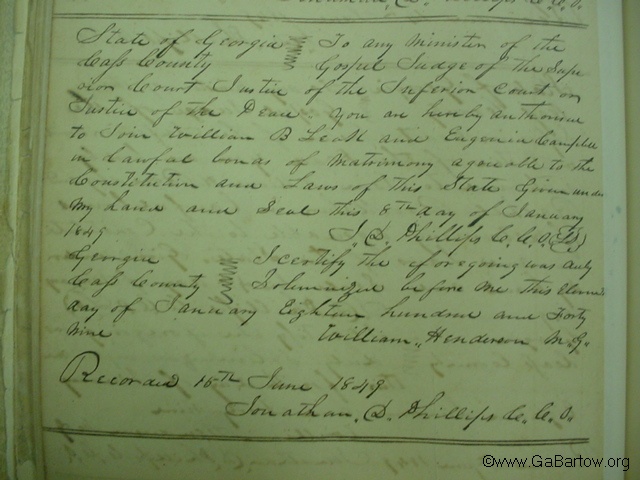 Phillips C. C. O.
State of Georgia To any Minister of the
Cass County Gospel Judge of the Supe
rior Court Justice of the Inferior Court or
Justice of the Peace. You are hereby authorised
to Join William B Leak and Eugenia Campbell
in Lawful bonds of Matrimony agreeable to the
Constitution and Laws of this State Given under
My hand and Seal this 8th day of January
1849 J. D. Phillips C. C. O.
Georgia I certify the foregoing was duly
Cass County Solemnized before me this Eleventh
day of January Eighteen hundred and Forty
Nine William Henderson M. G.
Recorded 18th June 1849
Jonathan. D. Phillips C. C. O.
©www.GaBartow.org